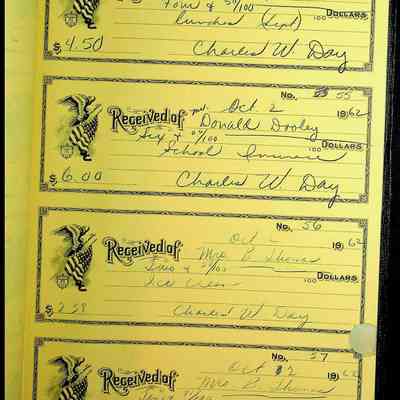 Four & 50/100 DOLLARS
Lunches (Sept)
$4.50 Charles W. Day
No. 55
Oct 2 1962
Received of Donald Dooley
Six & 00/100 DOLLARS
School Insurance
$6.00 Charles W. Day
No. 56
Oct 2 1962
Received of Mrs B Thomas
Two & /100 DOLLARS
Ice Cream
$2.58 Charles W. Day
No. 57
Oct 1962
Received of Mrs B. Thomas